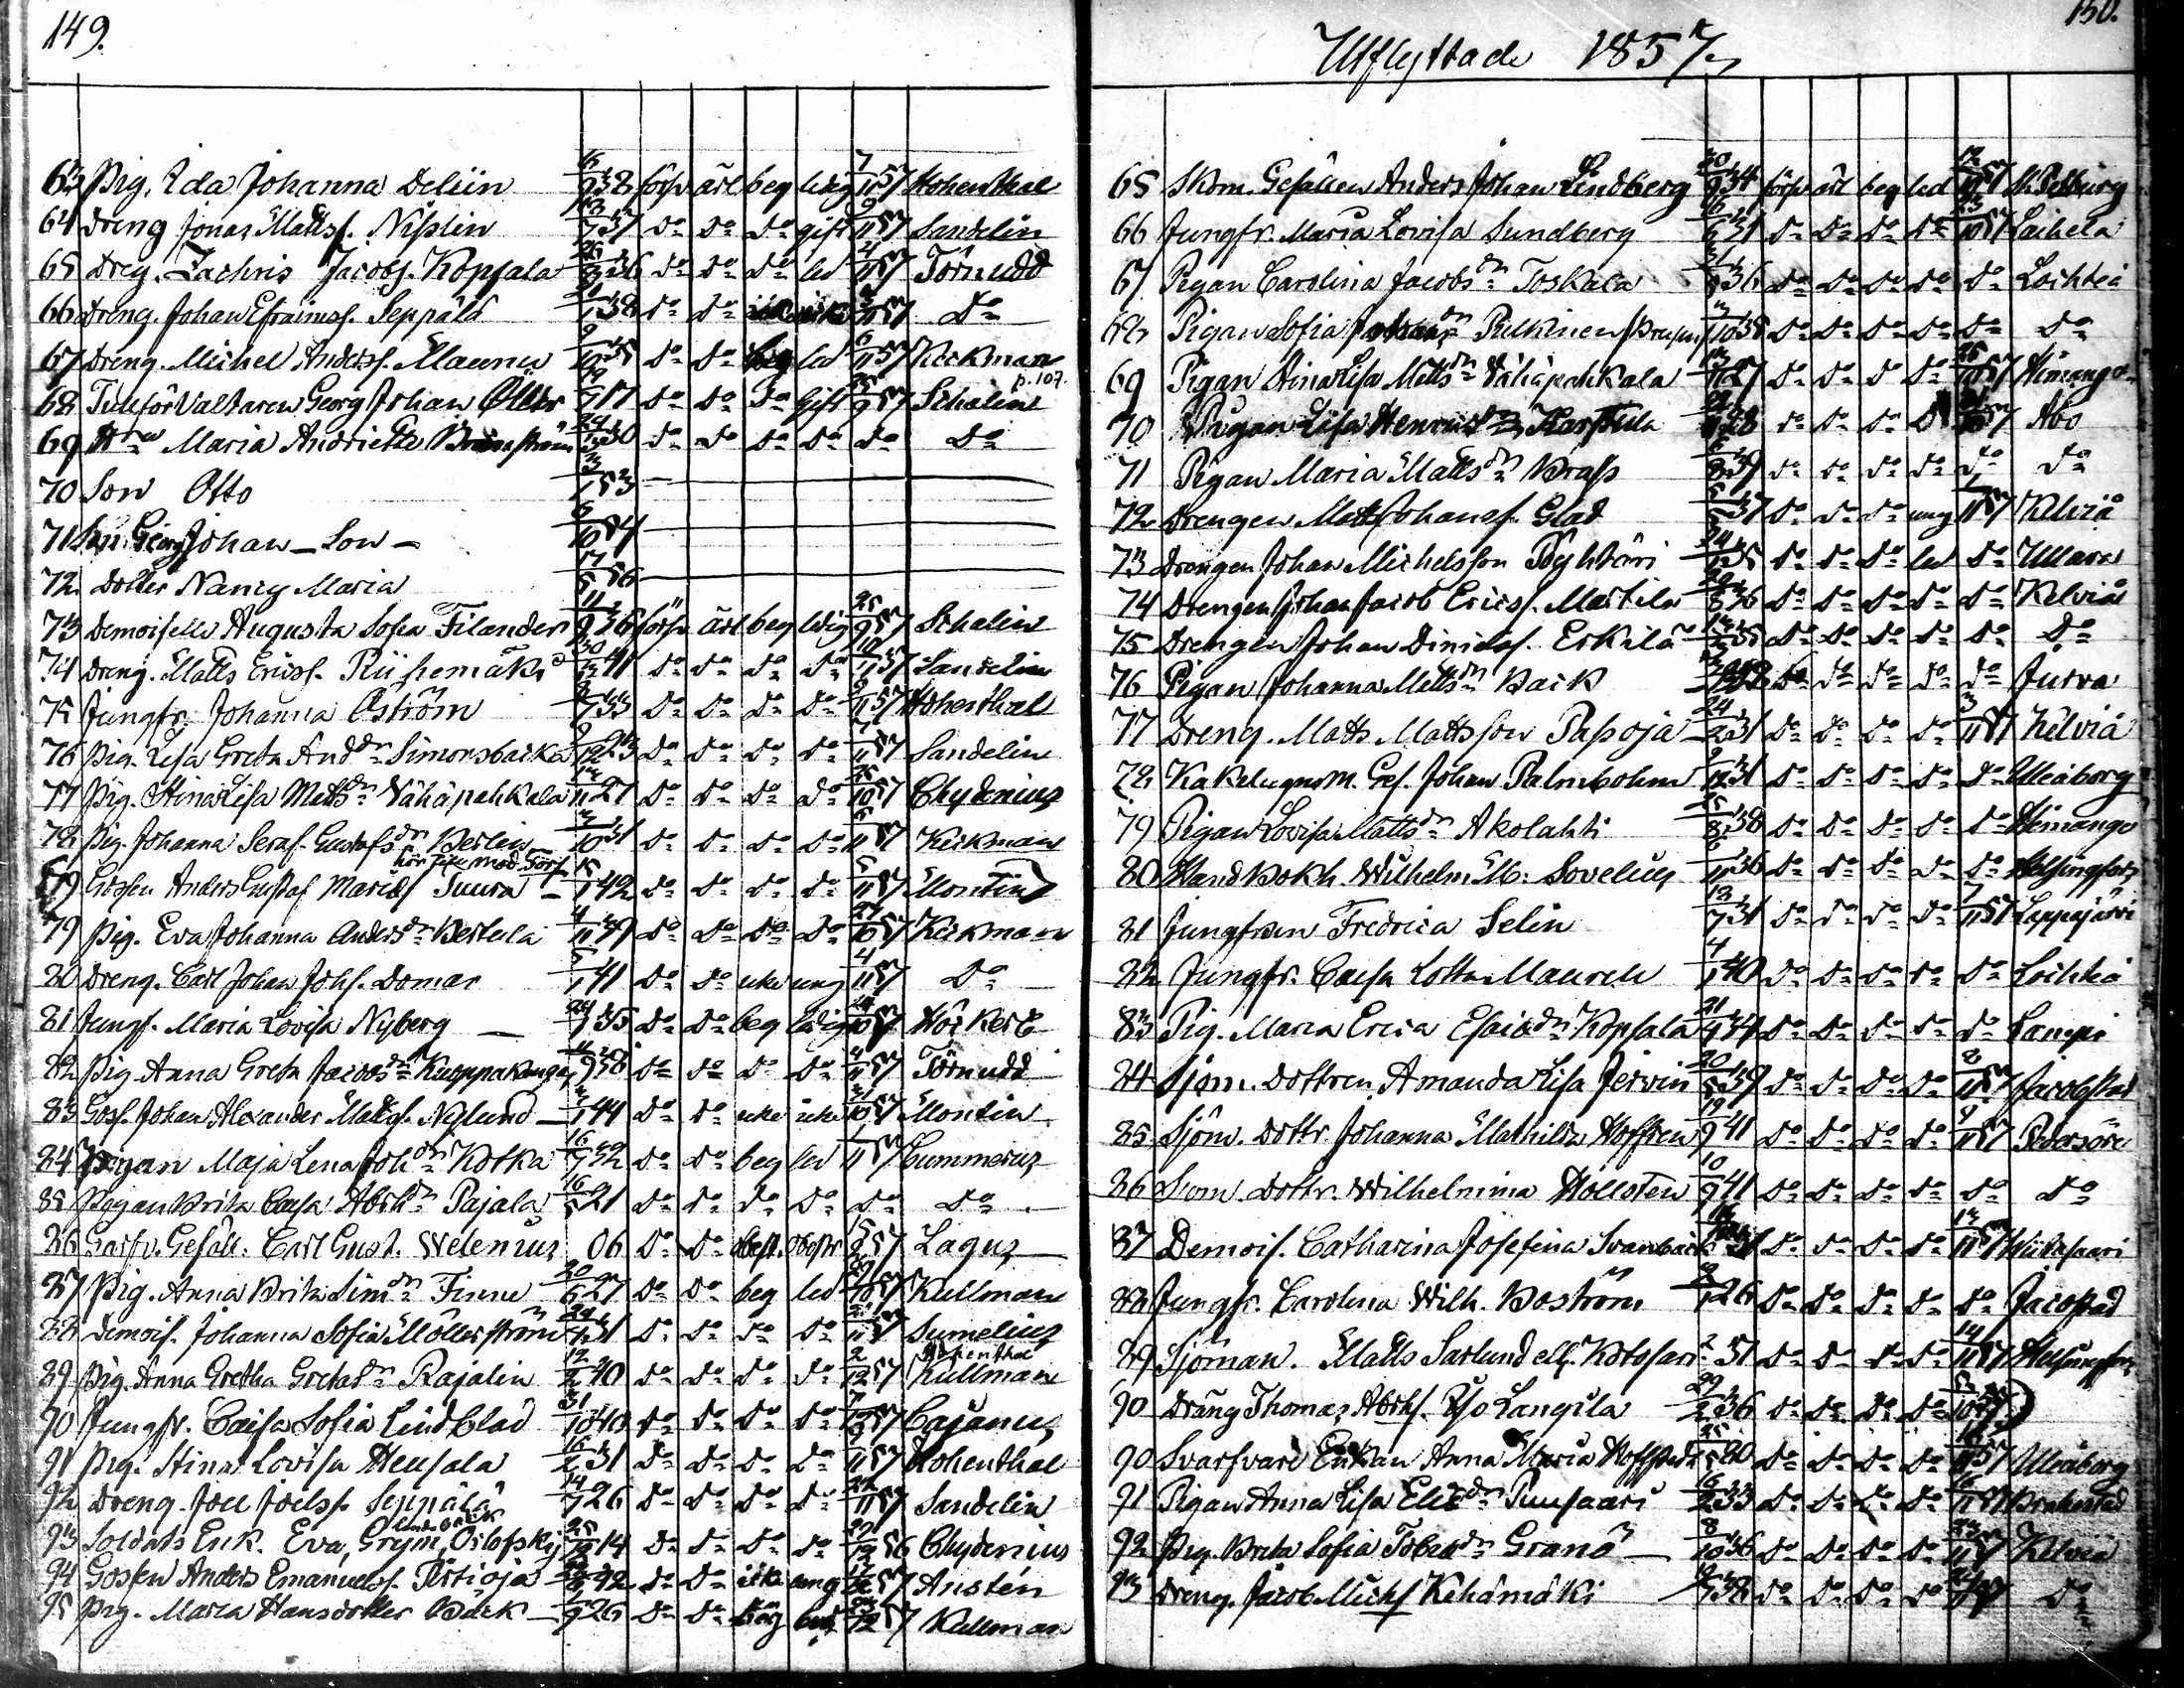 149.
63 Pig. Ida Johanna Deliin 6/9 38 förs ärl beg ledig 7/11 57 Hohenthal
64 Dreng Jonas Mattss. Nisslin 13/7 37 Do Do Do gift 9/11 57 Sandelin
65 Dreg. Zachris Jacobs. Kopsala 26/8 36 Do Do Do led 4/11 57 Törnudd
66 Dreng. Johan Efraimss. Seppälä 38 Do Do 57 Do
67 Dreng. Michel Anderss. Maunu 9/10 35 Do Do beg led 6/11 57 Kerkman
p. 107.
68 Tullförvaltaren Georg Johan Öller 17 Do Do Do Gift 25/9 57 Schalin
69 Maria Andriette 30 Do Do Do Do Do Do
70 Son Otto 3/1 53
71 Georg Johan - Son - 6/10 54
72 Dotter Nancy Maria 17/5 56
73 Demoiselle Augusta Sofia Filander 11/9 36 förs ärl beg ledig 25/9 57 Schalin
74 Dreng. Matts Ericss. Riihemäki 30/12 41 Do Do Do Do 10/11 57 Sandelin
75 Jungfr. Johanna Öström 33 Do Do Do Do 9/11 57 Hohenthal
76 Pig. Lisa Greta And:dr Simonsbacka 9/12 23 Do Do Do Do 7/11 57 Sandelin
77 Pig. Stina Lisa Matts dr Vähäpahkala 13/11 27 Do Do Do Do 26/10 57 Chydenius
78 Pig. Johanna Seraf. Gustafs dr Berlin 3/10 31 Do Do Do Do 6/11 57 Kerkman
79 Gossen Anders Gustaf Mariæs Suura 15/1 42 Do Do Do Do 5/11 57 Montin
79 Pig. Eva Johanna Anders dr Bertula 4/11 39 Do Do Do Do 27/10 57 Kerkman
80 Dreng. Carl Johan Johs. Domar 5/1 41 Do Do icke ung 4/11 57 Do
81 Jungf. Maria Lovisa Nyberg 24/7 35 Do Do beg ledig 57 Höckert
82 Pig Anna Greta Jacobs dr Kuoppakangas 11/9 38 Do Do Do Do 4/11 57 Törnudd
83 Goss. Johan Alexander Matts. Nylund 3/1 44 Do Do icke icke 31/10 57 Montin
84 Pigan Maja Lena Joh dr Kotka 16/7 32 Do Do beg led 1/11 57 Cummerus
85 Pigan Brita Caisa Abrh dr Pajala 16/5 21 Do Do Do Do Do Do
86 Garfv. Gesäll. Carl Gust. Welenius 06 Do Do obest. obestr 57 Lagus
87 Pig. Anna Brita Sim dr Finne 20/6 27 Do Do beg led 29/10 57 Kullman
88 Demois. Johanna Sofia Möllerström 24/7 31 Do Do Do Do 57 Sumelius
Hohenthal
89 Pig. Anna Gretha Greta dr Rajalin 12/2 40 Do Do Do Do 2/12 57 Kullman
90 Jungfr. Caisa Sofia Lindblad 31/10 40 Do Do Do Do 57 Cajanus
91 Pig. Stina Lovisa Heusala 16/2 31 Do Do Do Do 9/11 57 Hohenthal
92 Dreng. Joel Joelss. Seppälä 14/7 26 Do Do Do Do 57 Sandelin
93 Soldats Enk. Eva, Gryn, Orlofskij 25/12 14 Do Do Do Do 56 Chydenius
94 Gossen Anders Emanuelss. Pertioja 42 Do Do icke ung 57 Austén
95 Pig. Maria Hansdotter Back 26 Do Do beg led 12 57 Kullman
150.
Utflyttade 1857
65 Skom. Gesällen Anders Johan Lindberg 30/9 34 förs ärl beg led 12/10 57 St. Petburg
66 Jungfr. Maria Lovisa Sundberg 16/6 31 Do Do Do Do 23/10 57 Laihela
67 Pigan Carolina Jacobs dr Toskala 36 Do Do Do Do Do Lochteå
68 Pigan Sofia Johans dr Pulkinen 3/10 38 Do Do Do Do Do Do
69 Pigan Stina Lisa Matts dr Vähäpahkala 13/11 27 Do Do Do Do 26/10 57 Himango
70 Pigan Lisa Henrics dr Karstula 28 Do Do Do Do 57 Åbo
71 Pigan Maria Matts dr Brass 39 Do Do Do Do Do Do
72 Drengen Matts Johanss. Glad 37 Do Do Do ung 1/11 57 Kelviå
73 Drengen Johan Michelsson Pyhtäri 24/1 35 Do Do Do led Do Ullava
74 Drengen Johan Jacob Ericss. Martila 28/8 36 Do Do Do Do Do Kelviå
75 Drengen Johan Dinidss. Erkilä 35 Do Do Do Do Do Do
76 Pigan Johanna Matts dr Back 32 Do Do Do Do Do Jurva
77 Dreng. Matts Mattsson Pasoja 24/2 31 Do Do Do Do 3/11 57 Kelviå
78 Kakelugnsm. Ges. Johan Palmbohm 9/12 31 Do Do Do Do Do Uleåborg
79 Pigan Lovisa Matts dr Akolahti 38 Do Do Do Do Do Himango
80 Handl Bokh. Wilhelm M: Sovelius 6/11 36 Do Do Do Do Do Helsingfors
81 Jungfrun Fredrica Selin 13/7 31 Do Do Do Do 7/11 57 Lappajärvi
82 Jungfr. Caisa Lotta Maurell 4/1 40 Do Do Do Do Do Lochteå
83 Pig. Maria Erica Esaias dr Kopsala 21/4 34 Do Do Do Do Do Lampi
84 Sjöm. Dottren Amanda Lisa Jervin 20/5 39 Do Do Do Do 8/11 57 Jacobstad
85 Sjöm. Dottr. Johanna Mathilda Hoffrén 19/9 41 Do Do Do Do 9/11 57 Pedersöre
86 Sjöm. Dottr. Wilhelmina Höllsten 10/9 41 Do Do Do Do Do Do
87 Demois. Catharina Josefina Svanbäck 31 Do Do Do Do 13/11 57 Viitasaari
88 Jungfr. Carolina Wilh. Boström 26 Do Do Do Do Do Jacobstad
89 Sjöman. Matts Sarlund ell. Kotosari 37 Do Do Do Do 14/11 57 Helsingfors
90 Dräng Thomas Abrhs. Yso Langila 29/2 36 Do Do Do Do
90 Svarfvare Enkan Anna Maria Hoffstedt 20 Do Do Do Do 57 Uleåborg
91 Pigan Anna Lisa Elis dr Puusaari 16/2 33 Do Do Do Do 57 Brahestad
92 Pig. Brita Sofia Tobias dr Granö 8/10 36 Do Do Do Do 23/11 57 Kelviå
93 Dreng. Jacob Michs Kehämäki 38 Do Do Do Do 57 Do